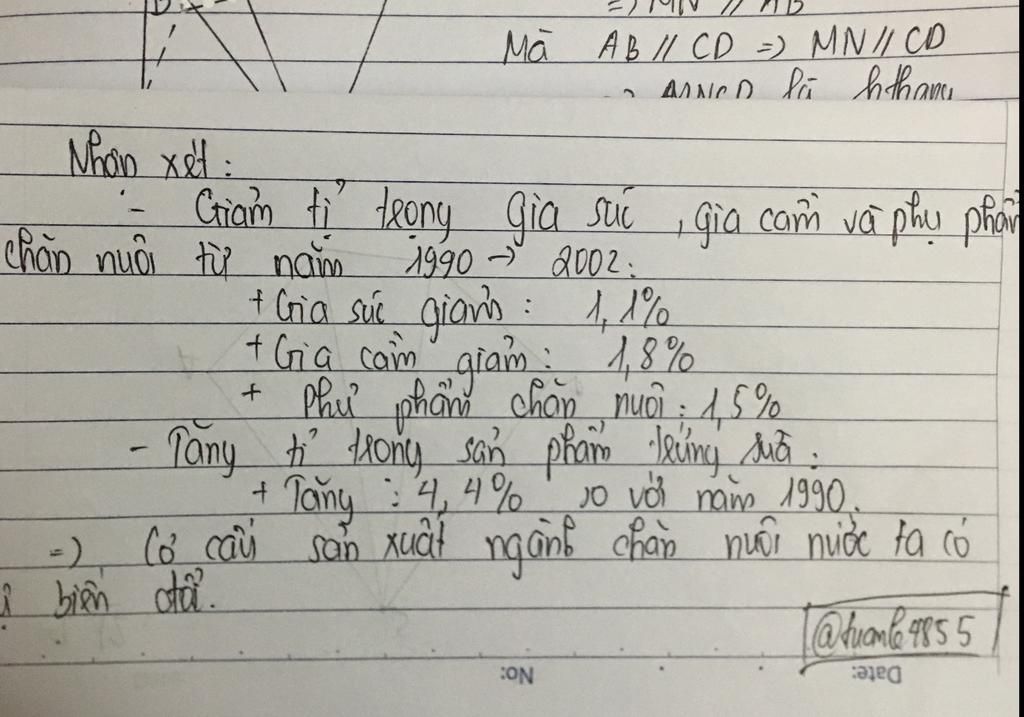 =) MN // AB
Mà AB // CD =) MN // CD
là hthang
Nhận xét:
- Giảm tỉ trọng gia súc, gia cầm và phụ phẩm
chăn nuôi từ năm 1990 -> 2002:
+ Gia súc giảm: 1,1%
+ Gia cầm giảm: 1,8%
+ Phụ phẩm chăn nuôi: 1,5%
- Tăng tỉ trọng sản phẩm trứng sữa:
+ Tăng: 4,4% so với năm 1990.
=) Cơ cấu sản xuất ngành chăn nuôi nước ta có
biến đổi.
@tuanle4855
No:
Date: